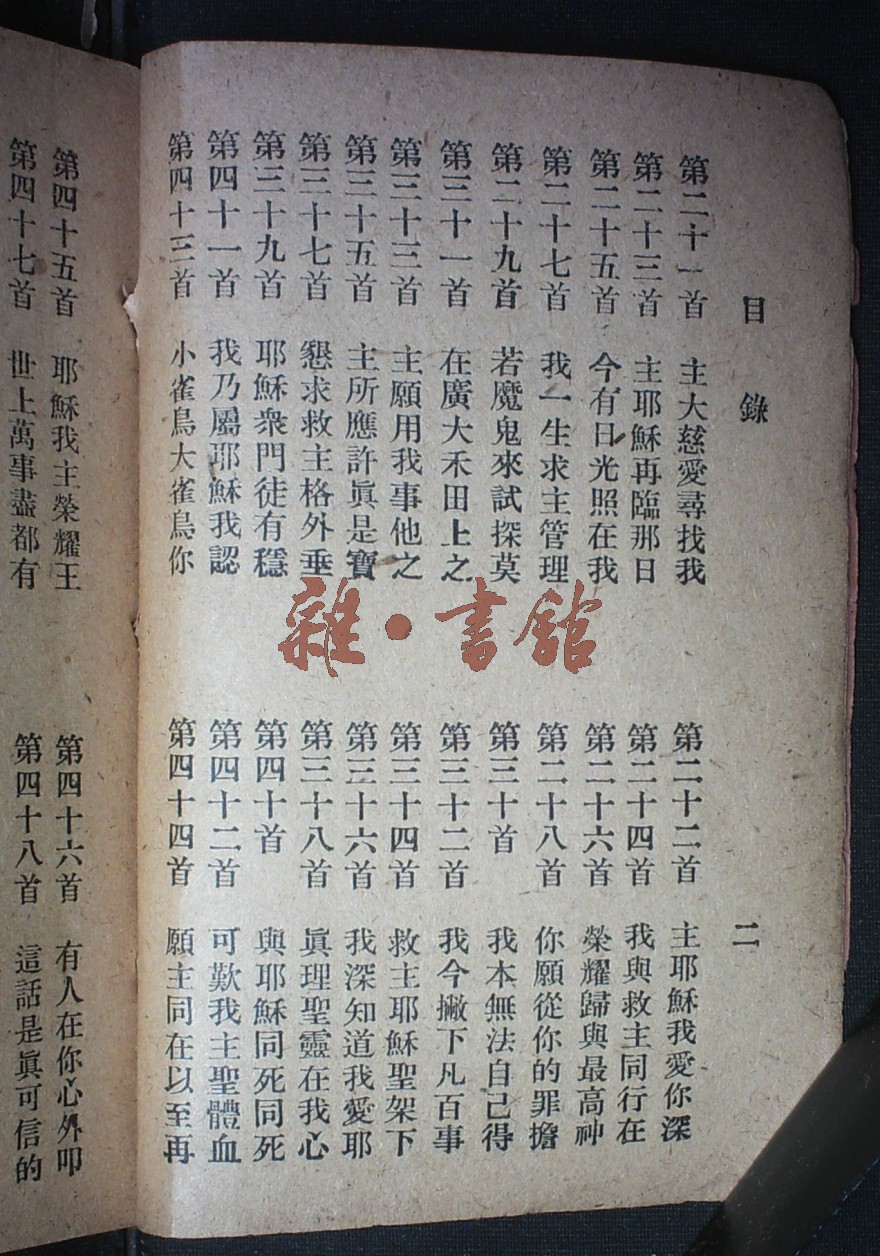 目錄 二
第二十一首 主大慈愛尋找我
第二十二首 主耶穌我愛你深
第二十三首 主耶穌再臨那日
第二十四首 我與救主同行在
第二十五首 今有日光照在我
第二十六首 榮耀歸與最高神
第二十七首 我一生求主管理
第二十八首 你願從你的罪擔
第二十九首 若魔鬼來試探莫
第三十首 我本無法自己得
第三十一首 在廣大禾田上之
第三十二首 我今撇下凡百事
第三十三首 主願用我事他之
第三十四首 救主耶穌聖架下
第三十五首 主所應許眞是寶
第三十六首 我深知道我愛耶
第三十七首 懇求救主格外垂
第三十八首 眞理聖靈在我心
第三十九首 耶穌衆門徒有穩
第四十首 與耶穌同死同死
第四十一首 我乃屬耶穌我認
第四十二首 可歎我主聖體血
第四十三首 小雀鳥大雀鳥你
第四十四首 願主同在以至再
第四十五首 耶穌我主榮耀王
第四十六首 有人在你心外叩
第四十七首 世上萬事盡都有
第四十八首 這話是眞可信的
雜·書館